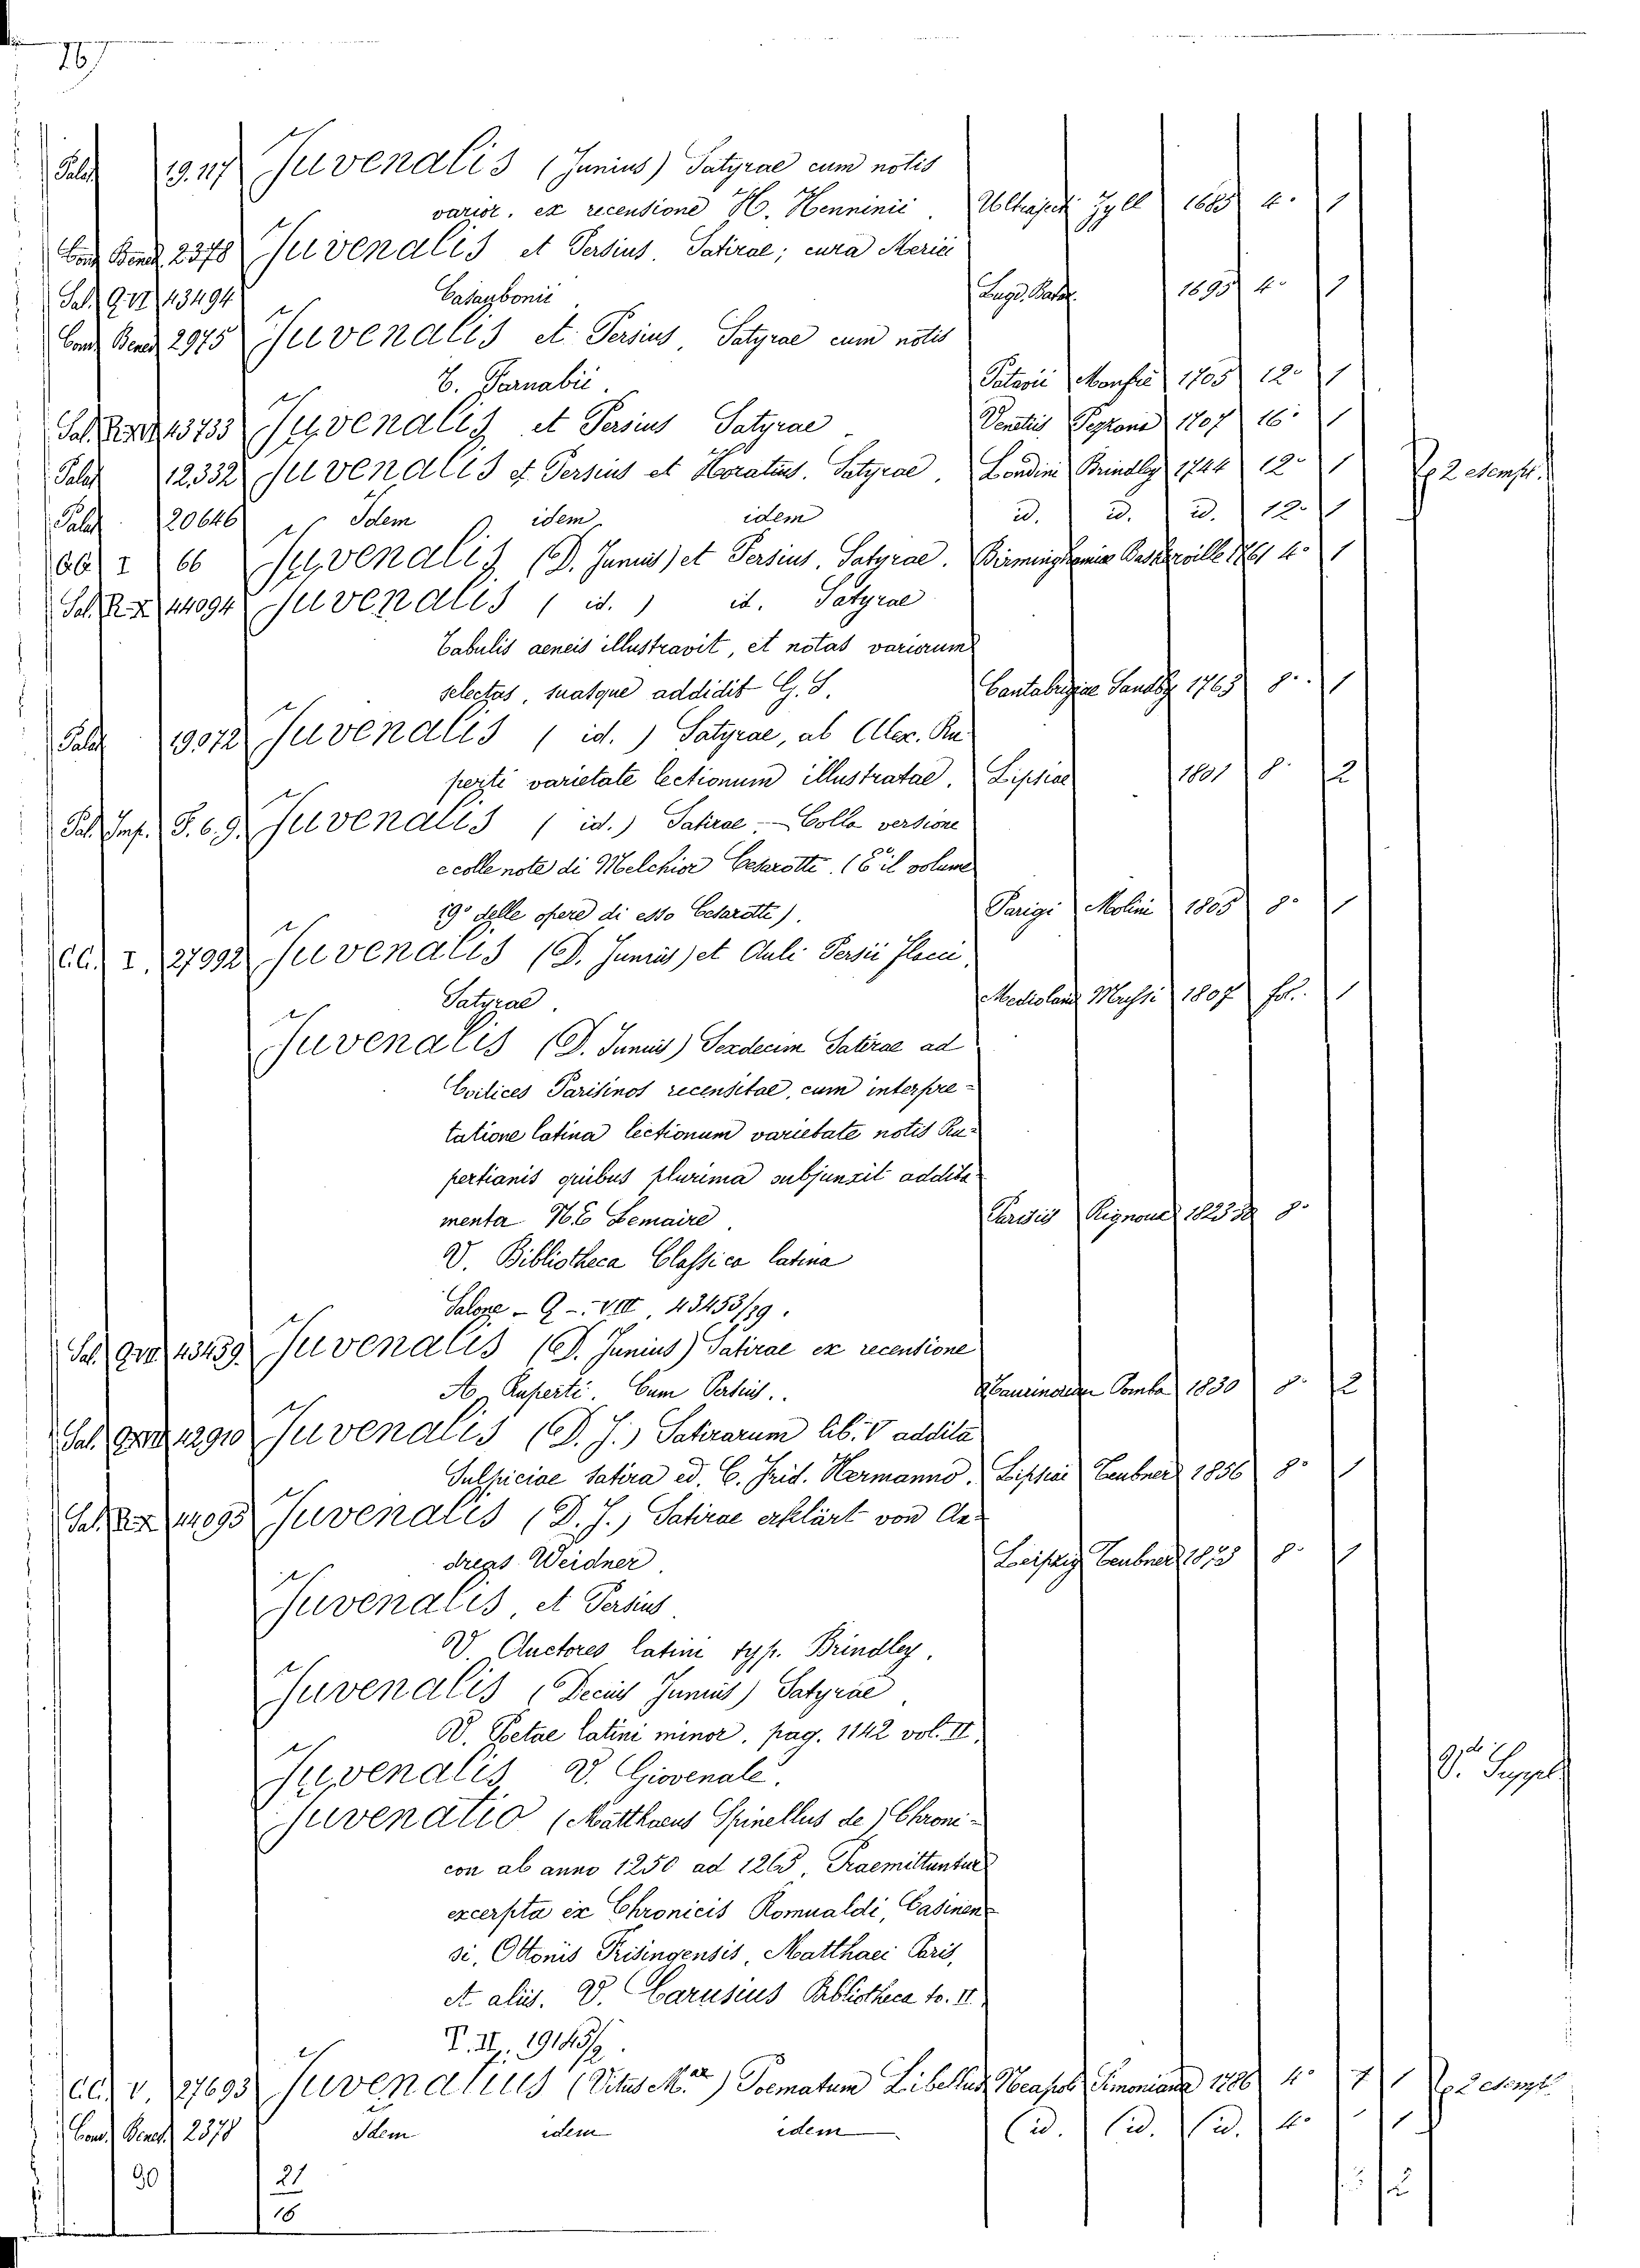 Palat 19.117 Juvenalis (Junius) Satyrae cum notis
varior. ex recensione H. Henninii. Ultraject Zyll 1685 4. 1
Bened. 2378 Juvenalis et Persius. Satirae; cura Merici
Sal. 43494 Casaubonii Lugd. Batav. 1695 4. 1
Bened. 2975 Juvenalis et Persius, Satyrae cum notis
T. Farnabii. Patavii Manfrè 1705 12. 1
Sal. 43733 Juvenalis et Persius Satyrae Venetiis Pezzana 1707 16. 1
Palat 12.332 Juvenalis et Persius et Horatius. Satyrae. Londini Brindley 1744 12. 1 2 esempl.
Palat 20646 Idem idem idem id. id. id. 12. 1
I 66 Juvenalis (D. Junius) et Persius. Satyrae. Birminghamiae Baskerville 1761 4. 1
Sal. R. X 44094 Juvenalis (id.) id. Satyrae
Tabulis aeneis illustravit, et notas variorum
selectas, suasque addidit G. S. Cantabrigiae Sandby 1763 8. 1
Palat 19072 Juvenalis (id.) Satyrae, ab Alex. Ru
perti varietate lectionum illustratae. Lipsiae 1801 8. 2
Pal. Imp. S. 6. 9. Juvenalis (id.) Satirae - Colla versione
e colle note di Melchior Cesarotti. (È il volume
19º delle opere di esso Cesarotti). Parigi Molini 1805 8. 1
I. 27992 Juvenalis (D. Junius) et Auli Persii Flacci,
Satyrae. Mediolani Mussi 1807 fol. 1
Juvenalis (D. Junius) Sexdecim Satirae ad
Codices Parisinos recensitae, cum interpre-
tatione latina lectionum varietate notis Ru-
pertianis quibus plurima subjunxit addita-
menta N. E Lemaire Parisiis Rignoux 1823 8.
V. Bibliotheca Classica latina
Salone - Q - VIII, 43453/79.
Sal. 43439. Juvenalis (D. Junius) Satirae ex recensione
A. Ruperti. Cum Persius.. Pomba 1830 8. 2
Sal. 42910 Juvenalis (D. J.) Satirarum lib. V addita
Sulpiciae satira ed. C. Frid. Hermanno. Lipsiae Teubner 1856 8. 1
Sal. R. X 44095 Juvenalis (D. J.) Satirae erklärt von An-
dreas Weidner. Leipzig Teubner 1873 8. 1
Juvenalis, et Persius
V. Auctores latini typ. Brindley.
Juvenalis (Decius Junius) Satyrae,
V. Poetae latini minor. pag. 1142 vol. II.
Juvenalis V. Giovenale. V. Suppl.
Juvenatio (Matthaeus Spinellus de) Chroni-
con ab anno 1250 ad 1265, Praemittuntur
excerpta ex Chronicis Romualdi, Casinen-
si, Ottonis Frisingensis, Matthaei Paris,
et aliis. V. Carusius Bibliotheca to. II.
T. II. 19145/2.
V. 27693 Juvenatius (Vitus M.ª) Poematum Libellus Neapoli Simoniana 1786 4. 1 2 esempl.
Bened. 2378 Idem idem idem id. id. id. 4. 1
90 21
16